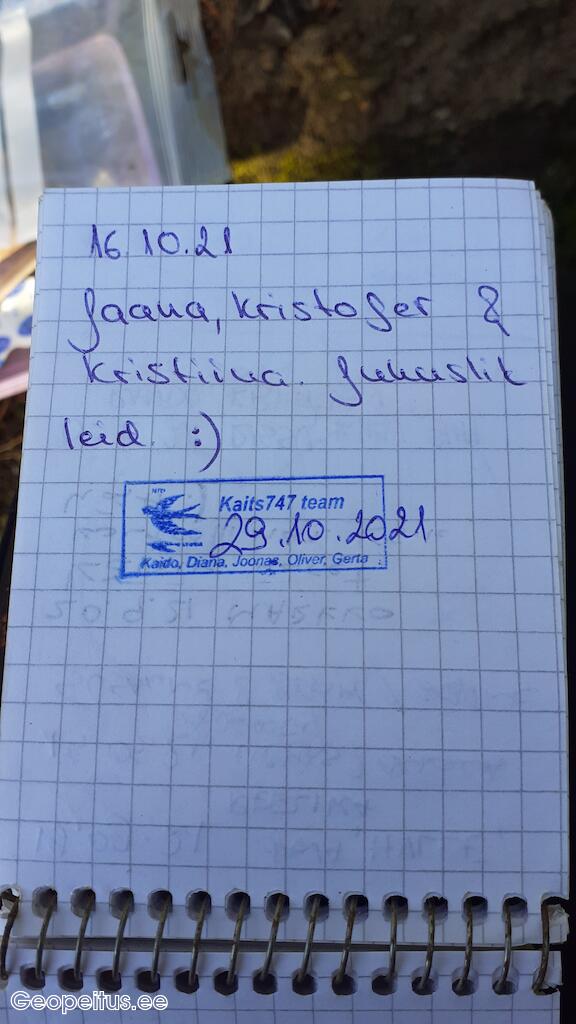 16.10.21
Jaana, Kristofer &
Kristiina. Juhuslik
leid :)
Kaits747 team
29.10.2021
Kaido, Diana, Joonas, Oliver, Gerta
Geopeitus.ee